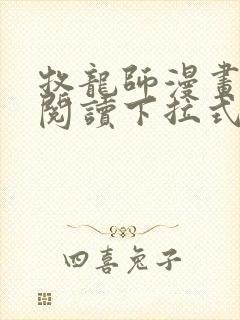 牧龍師漫畫
閱讀下拉式
四喜兔子